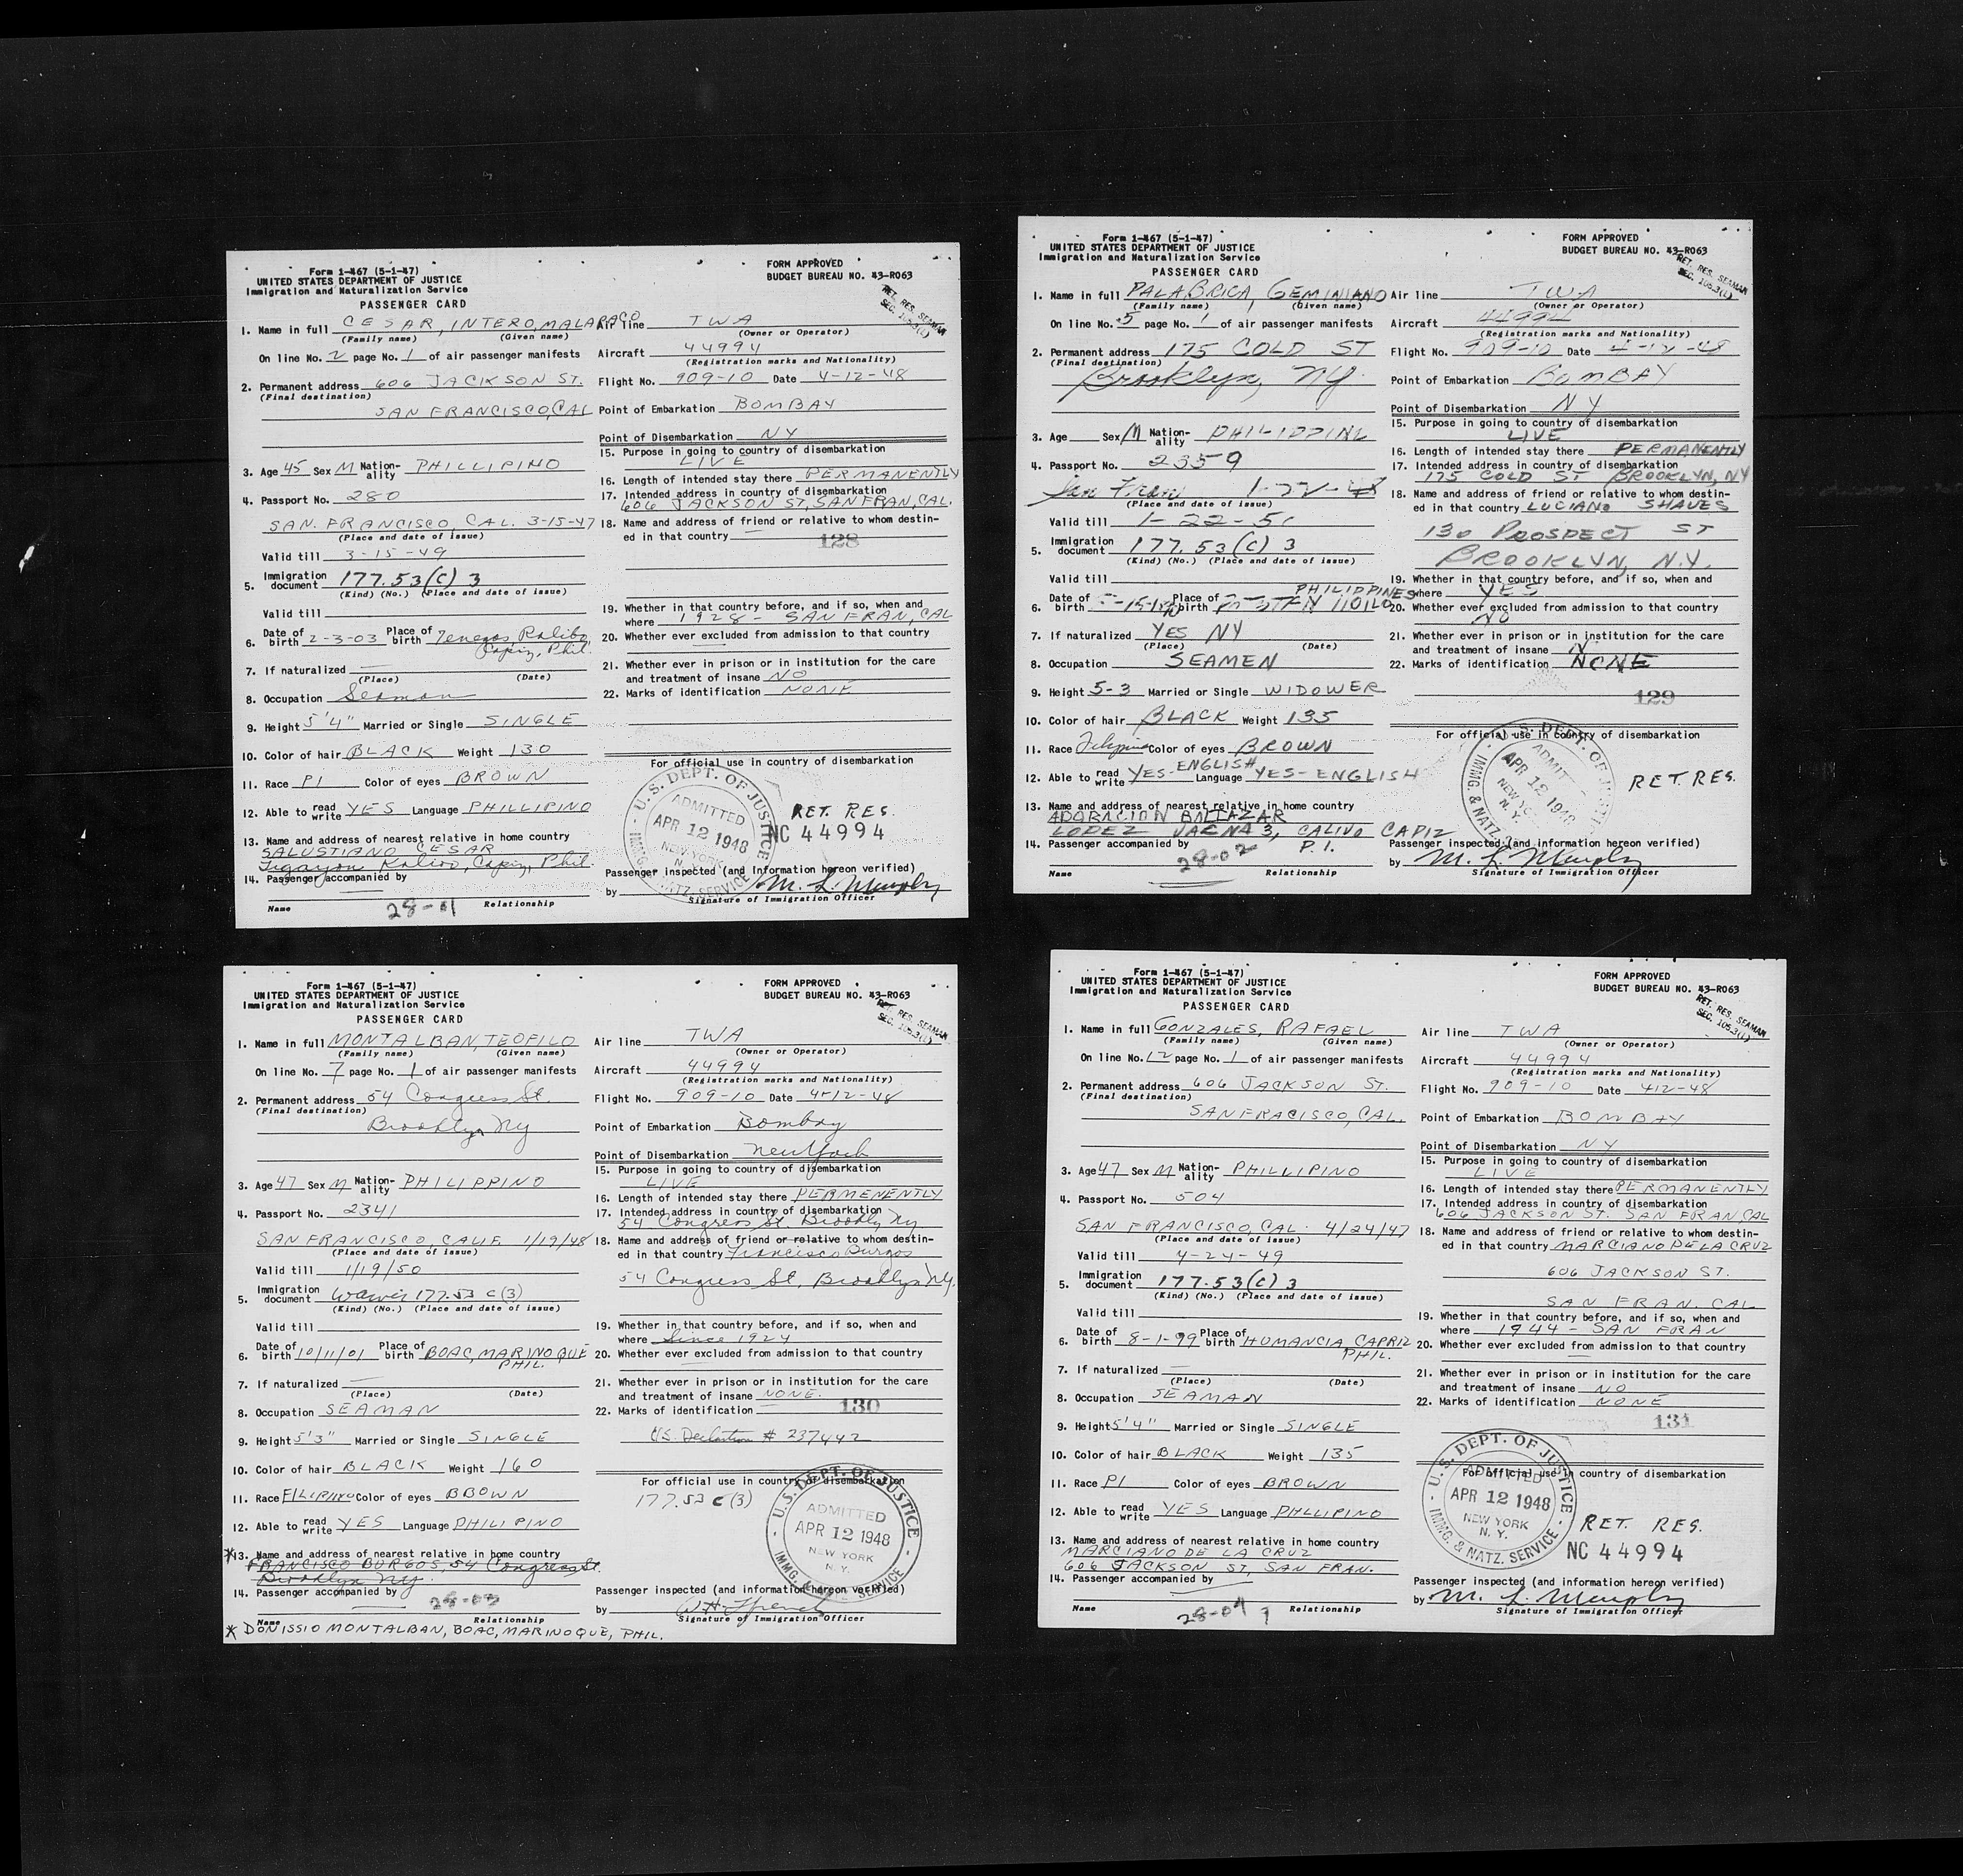 Form 1-467 (5-1-47)
UNITED STATES DEPARTMENT OF JUSTICE
Immigration and Naturalization Service
PASSENGER CARD
FORM APPROVED
BUDGET BUREAU NO. 43-R063
RET. RES. SEAMAN
SEC. 105.3(L)
1. Name in full CESAR, INTERO, MALAPACO
(Family name) (Given name)
On line No. 2 page No. 1 of air passenger manifests
2. Permanent address 606 JACKSON ST.
(Final destination)
SAN FRANCISCO, CAL
3. Age 45 Sex M Nationality PHILLIPINO
4. Passport No. 280
SAN. FRANCISCO, CAL. 3-15-47
(Place and date of issue)
Valid till 3-15-49
5. Immigration document 177.53(C) 3
(Kind) (No.) (Place and date of issue)
Valid till
6. Date of birth 2-3-03 Place of birth Kalibo,
Capiz, Phil.
7. If naturalized —
(Place) (Date)
8. Occupation Seaman
9. Height 5'4" Married or Single SINGLE
10. Color of hair BLACK Weight 130
11. Race PI Color of eyes BROWN
12. Able to read write YES Language PHILLIPINO
13. Name and address of nearest relative in home country
SALUSTIANO CESAR
Tigayon Kalivo, Capiz, Phil.
14. Passenger accompanied by
Name Relationship
28-01
Air line TWA
(Owner or Operator)
Aircraft 44994
(Registration marks and Nationality)
Flight No. 909-10 Date 4-12-48
Point of Embarkation BOMBAY
Point of Disembarkation NY
15. Purpose in going to country of disembarkation
LIVE
16. Length of intended stay there PERMANENTLY
17. Intended address in country of disembarkation
606 JACKSON ST, SAN FRAN, CAL.
18. Name and address of friend or relative to whom destin-
ed in that country —
128
19. Whether in that country before, and if so, when and
where 1928 - SAN FRAN, CAL
20. Whether ever excluded from admission to that country
—
21. Whether ever in prison or in institution for the care
and treatment of insane NO
22. Marks of identification NONE
For official use in country of disembarkation
U.S. DEPT. OF JUSTICE
ADMITTED
APR 12 1948
NEW YORK
N.Y.
IMMG. & NATZ. SERVICE
RET. RES.
NC 44994
Passenger inspected (and information hereon verified)
by M. L. Murphy
Signature of Immigration Officer
Form 1-467 (5-1-47)
UNITED STATES DEPARTMENT OF JUSTICE
Immigration and Naturalization Service
PASSENGER CARD
FORM APPROVED
BUDGET BUREAU NO. 43-R063
RET. RES. SEAMAN
SEC. 105.3(L)
1. Name in full PALABRICA, GEMINIANO
(Family name) (Given name)
On line No. 5 page No. 1 of air passenger manifests
2. Permanent address 175 COLD ST
(Final destination)
Brooklyn, NY.
3. Age Sex M Nationality PHILIPPINE
4. Passport No. 2359
San Fran 1-22-48
(Place and date of issue)
Valid till 1-22-50
5. Immigration document 177.53(C) 3
(Kind) (No.) (Place and date of issue)
Valid till
6. Date of birth Place of birth PHILIPPINES
7. If naturalized YES NY
(Place) (Date)
8. Occupation SEAMEN
9. Height 5-3 Married or Single WIDOWER
10. Color of hair BLACK Weight 135
11. Race Filipino Color of eyes BROWN
12. Able to read write YES-ENGLISH Language YES-ENGLISH
13. Name and address of nearest relative in home country
ADARACION BALTAZAR
LOPEZ JAENA 3, CALIVO CAPIZ
P.I.
14. Passenger accompanied by
Name Relationship
28-02
Air line TWA
(Owner or Operator)
Aircraft 44994
(Registration marks and Nationality)
Flight No. 909-10 Date 4-12-48
Point of Embarkation BOMBAY
Point of Disembarkation NY
15. Purpose in going to country of disembarkation
LIVE
16. Length of intended stay there PERMANENTLY
17. Intended address in country of disembarkation
175 COLD ST BROOKLYN, NY
18. Name and address of friend or relative to whom destin-
ed in that country LUCIANO SHAVES
130 PROSPECT ST
BROOKLYN, N.Y.
19. Whether in that country before, and if so, when and
where YES
20. Whether ever excluded from admission to that country
NO
21. Whether ever in prison or in institution for the care
and treatment of insane N
22. Marks of identification NONE
129
For official use in country of disembarkation
U.S. DEPT. OF JUSTICE
ADMITTED
APR 12 1948
NEW YORK
N.Y.
IMMG. & NATZ.
RET RES.
Passenger inspected (and information hereon verified)
by M. L. Murphy
Signature of Immigration Officer
Form 1-467 (5-1-47)
UNITED STATES DEPARTMENT OF JUSTICE
Immigration and Naturalization Service
PASSENGER CARD
FORM APPROVED
BUDGET BUREAU NO. 43-R063
RET. RES. SEAMAN
SEC. 105.3(L)
1. Name in full MONTALBAN, TEOFILO
(Family name) (Given name)
On line No. 7 page No. 1 of air passenger manifests
2. Permanent address 54 Congress St.
(Final destination)
Brooklyn NY
3. Age 47 Sex M Nationality PHILIPPINO
4. Passport No. 2341
SAN FRANCISCO, CALIF. 1/19/48
(Place and date of issue)
Valid till 1/19/50
5. Immigration document Waiver 177.53 C(3)
(Kind) (No.) (Place and date of issue)
Valid till
6. Date of birth 10/11/01 Place of birth BOAC, MARINOQUE
PHIL.
7. If naturalized —
(Place) (Date)
8. Occupation SEAMAN
9. Height 5'3" Married or Single SINGLE
10. Color of hair BLACK Weight 160
11. Race FILIPINO Color of eyes BBOWN
12. Able to read write YES Language PHILIPINO
*13. Name and address of nearest relative in home country
FRANCISCO BURGOS, 54 Congress St.
Brooklyn NY.
14. Passenger accompanied by
Name Relationship
28-03
* DONISSIO MONTALBAN, BOAC, MARINOQUE, PHIL.
Air line TWA
(Owner or Operator)
Aircraft 44994
(Registration marks and Nationality)
Flight No. 909-10 Date 4-12-48
Point of Embarkation Bombay
Point of Disembarkation New York
15. Purpose in going to country of disembarkation
LIVE
16. Length of intended stay there PERMENENTLY
17. Intended address in country of disembarkation
54 Congress St. Brooklyn NY
18. Name and address of friend or relative to whom destin-
ed in that country Francisco Burgos
54 Congress St. Brooklyn NY.
19. Whether in that country before, and if so, when and
where Since 1924
20. Whether ever excluded from admission to that country
—
21. Whether ever in prison or in institution for the care
and treatment of insane NONE.
22. Marks of identification —
130
U.S. Declaration # 237442
For official use in country of disembarkation
177.53 C (3)
U.S. DEPT. OF JUSTICE
ADMITTED
APR 12 1948
NEW YORK
N.Y.
IMMG. & NATZ. SERVICE
Passenger inspected (and information hereon verified)
by W. H. French
Signature of Immigration Officer
Form 1-467 (5-1-47)
UNITED STATES DEPARTMENT OF JUSTICE
Immigration and Naturalization Service
PASSENGER CARD
FORM APPROVED
BUDGET BUREAU NO. 43-R063
RET. RES. SEAMAN
SEC. 105.3(L)
1. Name in full GONZALES, RAFAEL
(Family name) (Given name)
On line No. 12 page No. 1 of air passenger manifests
2. Permanent address 606 JACKSON ST.
(Final destination)
SANFRACISCO, CAL.
3. Age 47 Sex M Nationality PHILLIPINO
4. Passport No. 504
SAN FRANCISCO, CAL. 4/24/47
(Place and date of issue)
Valid till 4-24-49
5. Immigration document 177.53(C) 3
(Kind) (No.) (Place and date of issue)
Valid till
6. Date of birth 8-1-99 Place of birth HUMANCIA CAPRIZ
PHIL.
7. If naturalized —
(Place) (Date)
8. Occupation SEAMAN
9. Height 5'4" Married or Single SINGLE
10. Color of hair BLACK Weight 135
11. Race PI Color of eyes BROWN
12. Able to read write YES Language PHLLIPINO
13. Name and address of nearest relative in home country
MARCIANO DE LA CRUZ
606 JACKSON ST, SAN FRAN.
14. Passenger accompanied by
Name Relationship
28-04
Air line TWA
(Owner or Operator)
Aircraft 44994
(Registration marks and Nationality)
Flight No. 909-10 Date 412-48
Point of Embarkation BOMBAY
Point of Disembarkation NY
15. Purpose in going to country of disembarkation
LIVE
16. Length of intended stay there PERMANENTLY
17. Intended address in country of disembarkation
606 JACKSON ST. SAN FRAN, CAL
18. Name and address of friend or relative to whom destin-
ed in that country MARCIANO DE LA CRUZ
606 JACKSON ST.
SAN FRAN. CAL
19. Whether in that country before, and if so, when and
where 1944 - SAN FRAN
20. Whether ever excluded from admission to that country
—
21. Whether ever in prison or in institution for the care
and treatment of insane NO
22. Marks of identification NONE
131
For official use in country of disembarkation
U.S. DEPT. OF JUSTICE
ADMITTED
APR 12 1948
NEW YORK
N.Y.
IMMG. & NATZ. SERVICE
RET. RES.
NC 44994
Passenger inspected (and information hereon verified)
by M. L. Murphy
Signature of Immigration Officer